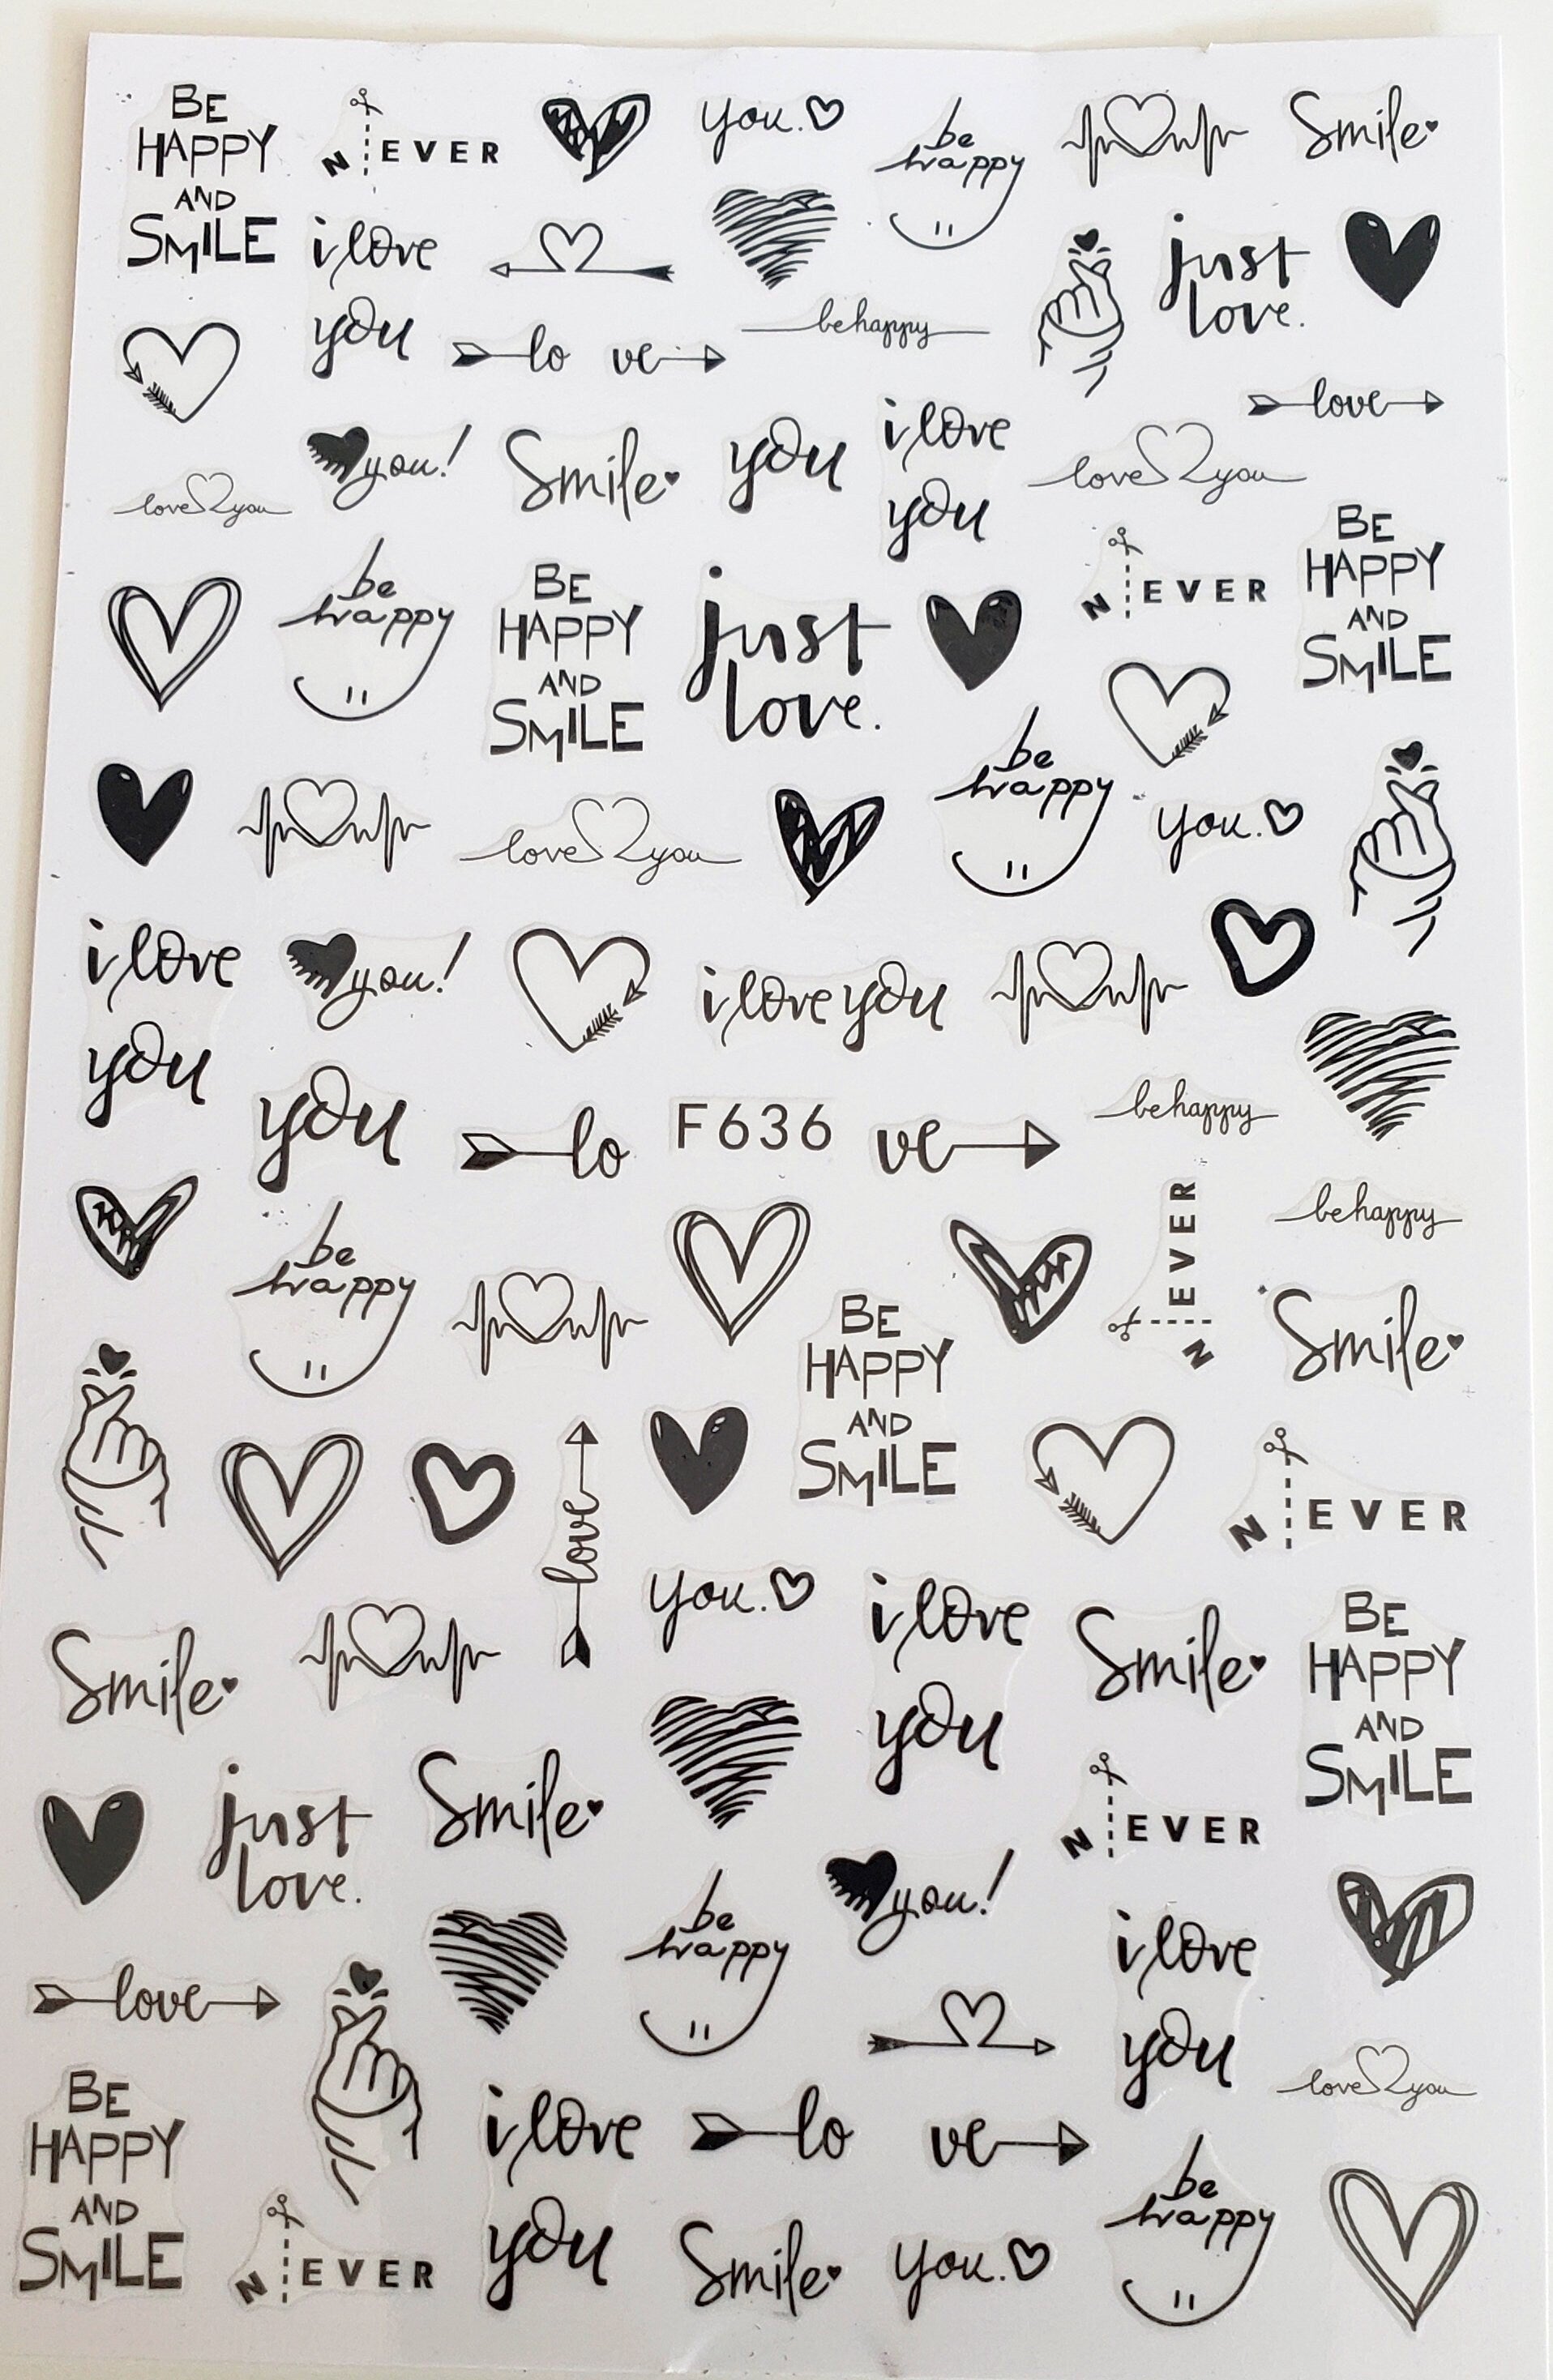 BE
HAPPY
AND
SMILE
N EVER
you.
be
happy
Smile
i love
you
just
love.
lo ve
be happy
love
love you
you!
Smile
you
i love
you
love you
be
happy
BE
HAPPY
AND
SMILE
just
love.
N EVER
BE
HAPPY
AND
SMILE
love you
be
happy
you.
i love
you
you!
i love you
you
lo
F636
ve
be happy
be happy
be
happy
N EVER
Smile
BE
HAPPY
AND
SMILE
love
N EVER
you.
i love
you
Smile
Smile
BE
HAPPY
AND
SMILE
just
love.
Smile
N EVER
you!
be
happy
i love
you
love
love you
BE
HAPPY
AND
SMILE
i love
you
lo ve
be
happy
N EVER
Smile
you.